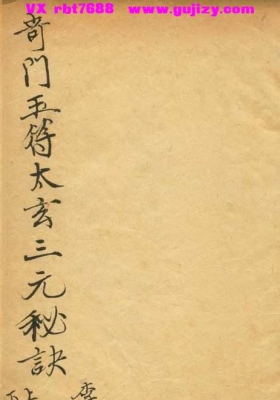 VX rbt7688  www.gujizy.com
奇门玉符太玄三元秘訣
李